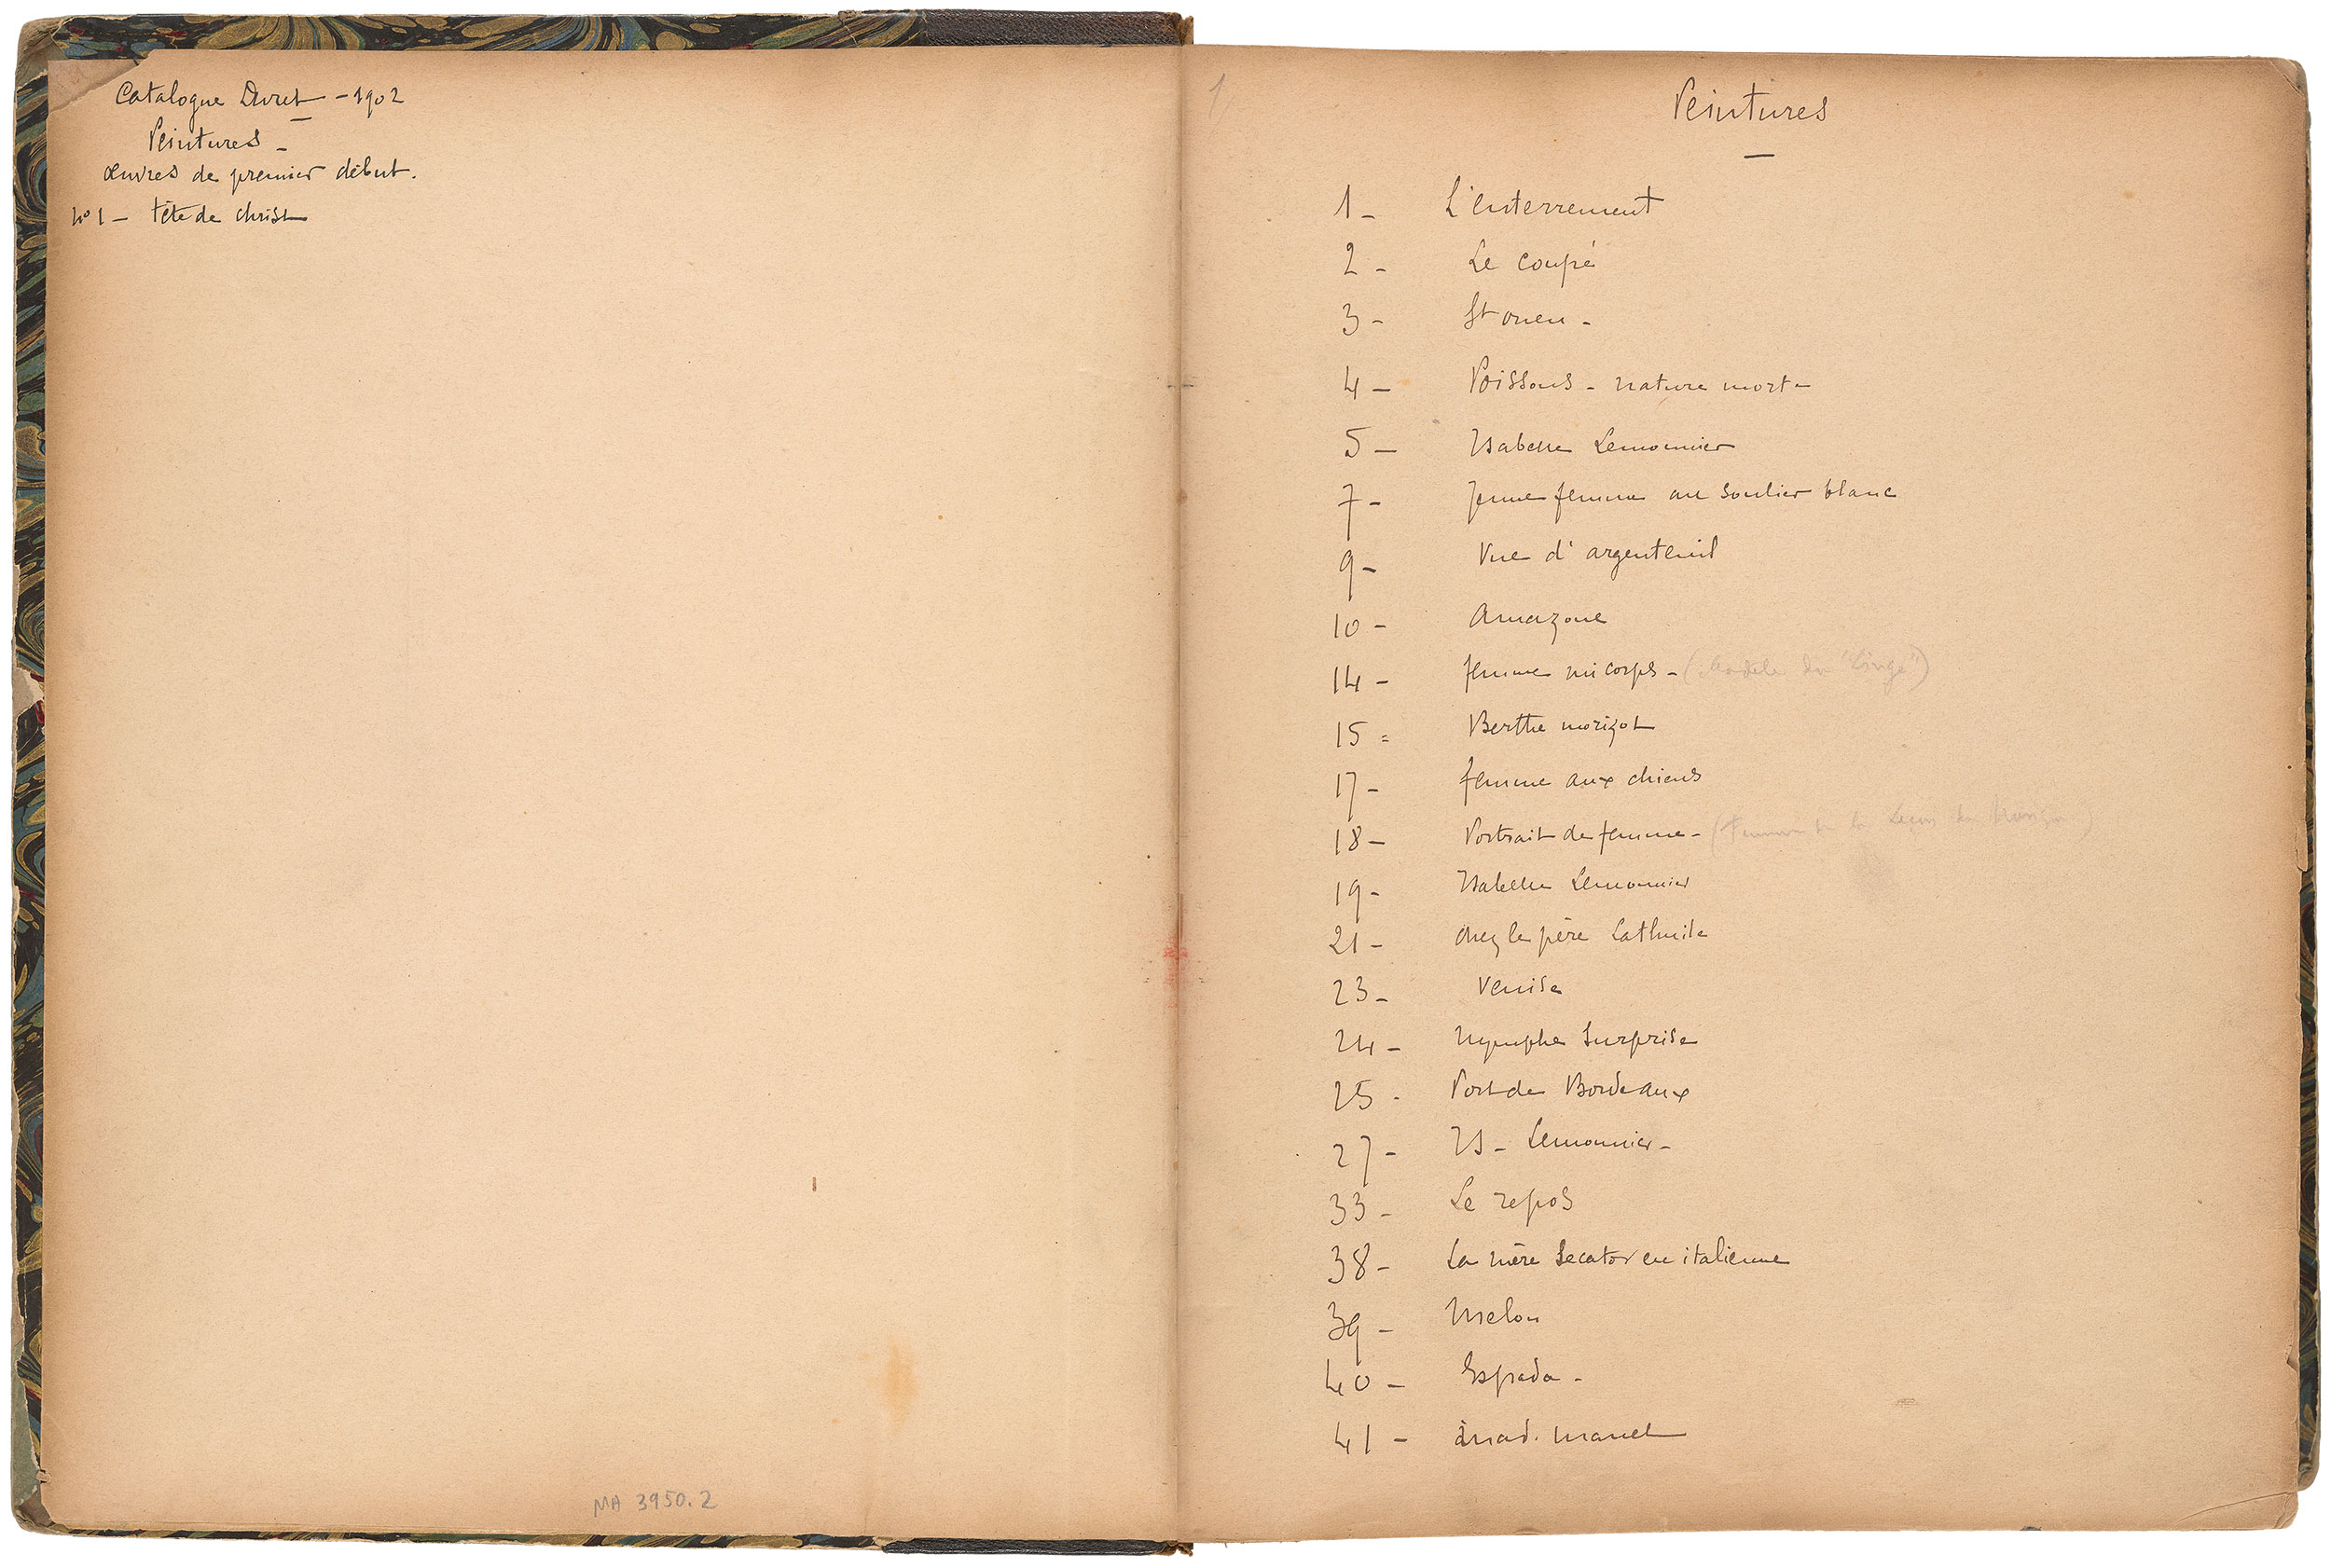 Catalogue Duret - 1902
Peintures -
œuvres de premier début.
No 1 - tête de christ
MA 3950.2
1
Peintures
1 - L'enterrement
2 - Le coupé
3 - St ouen -
4 - Poissons - nature morte
5 - Isabelle Lemonnier
7 - Jeune femme au soulier blanc
9 - Vue d'argenteuil
10 - Amazone
14 - femme mi corps - (Modèle du "Linge")
15 = Berthe morizot
17 - femme aux chiens
18 - Portrait de femme - (Femme de la Leçon de Musique)
19 - Isabelle Lemonnier
21 - chez le père Lathuile
23 - Venise
24 - Nymphe Surprise
25 - Port de Bordeaux
27 - Is - Lemonnier -
33 - Le repos
38 - La mère en italienne
39 - Melon
40 - Espada -
41 - mad. manet